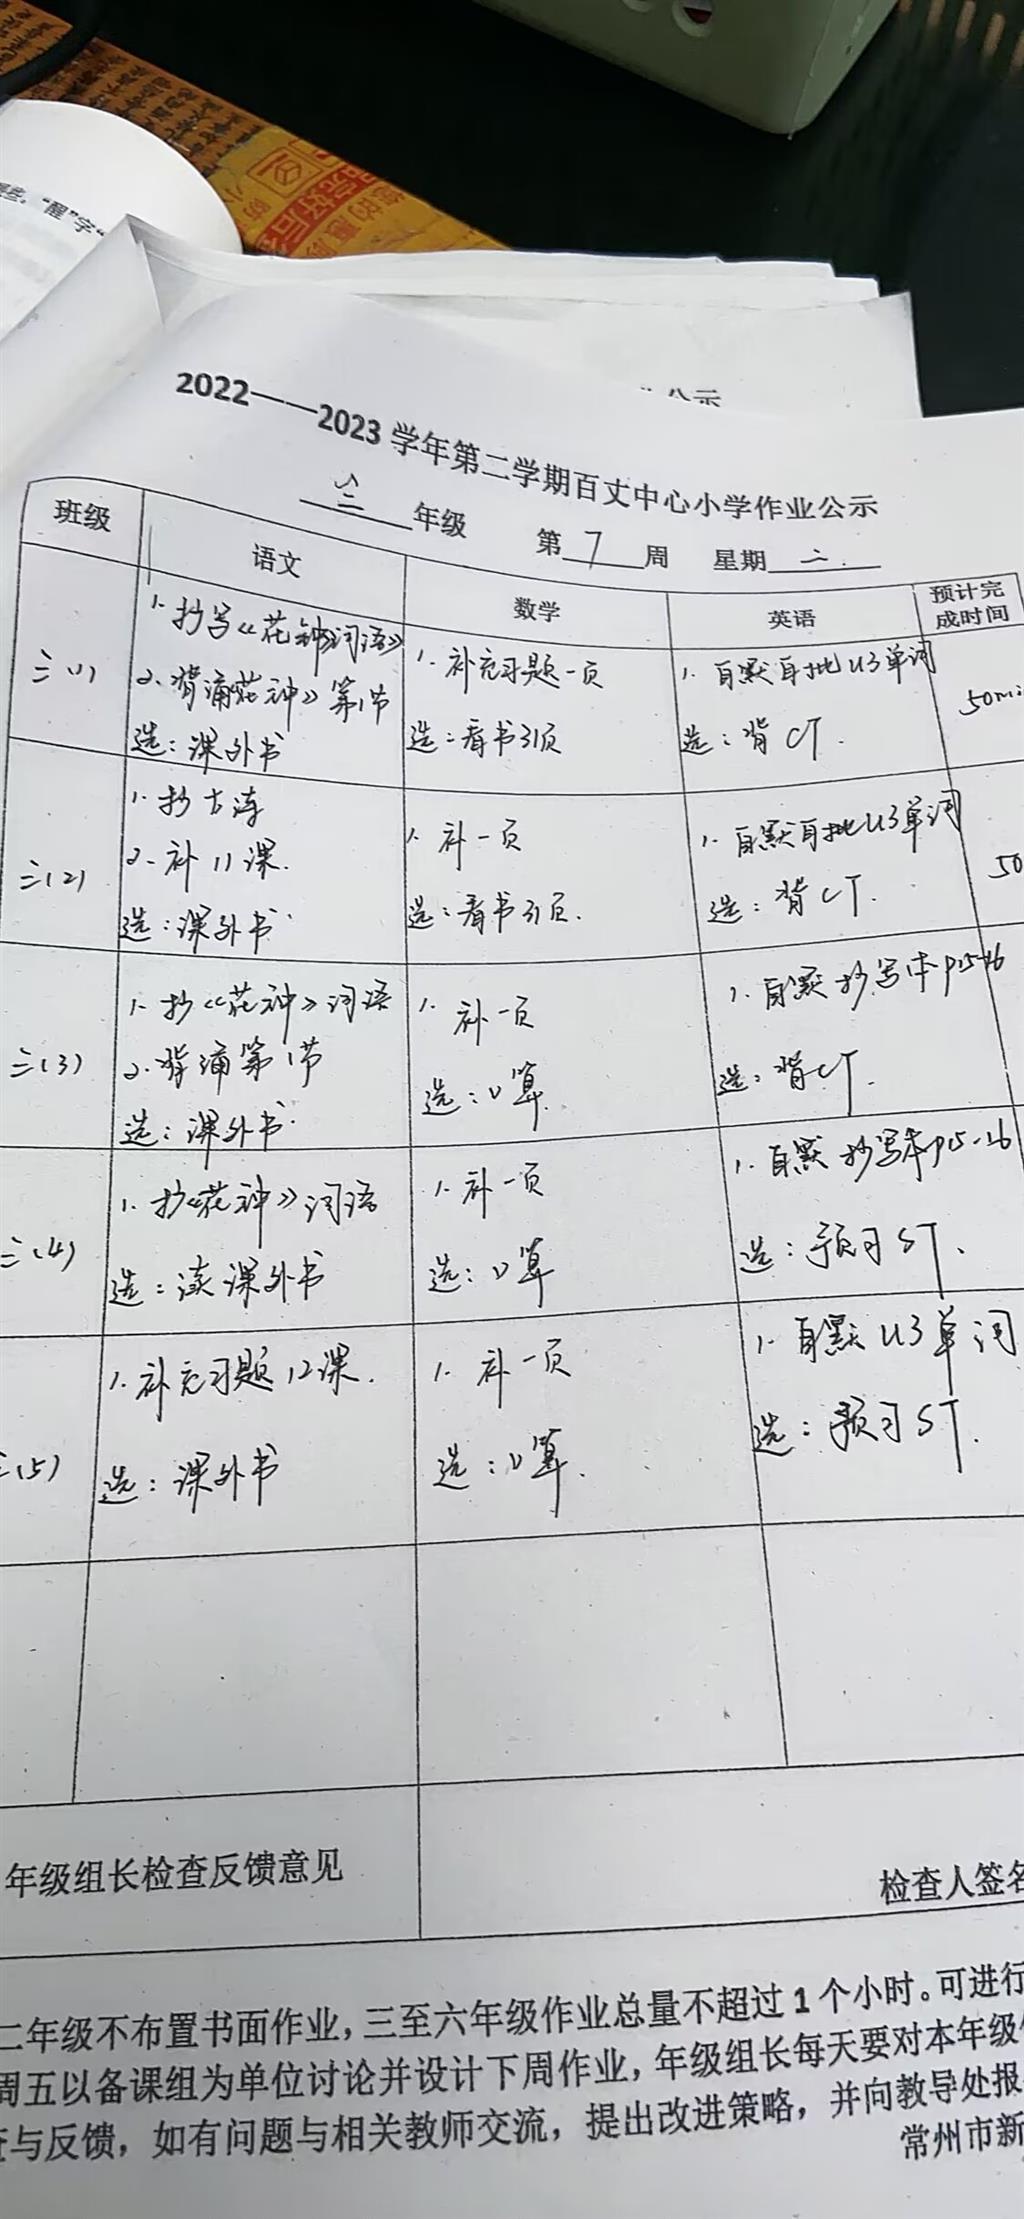 "醒"字"
公示
2022——2023 学年第二学期百丈中心小学作业公示
三 年级 第 7 周 星期 二.
班级 语文 数学 英语 预计完成时间
三(1)
1. 抄写《花钟词语》
2. 背诵《花钟》第1节
选：课外书
1. 补充习题一页
选：看书31页
1. 自默自批U3单词
选：背 CT.
50mi
三(2)
1. 抄古诗
2. 补 11 课.
选：课外书.
1. 补一页
选：看书31页.
1. 自默自批U3单词
选：背 CT.
50
三(3)
1. 抄《花钟》词语
2. 背诵第1节
选：课外书.
1. 补一页
选：口算.
1. 自默抄写本P15-16
选：背CT.
三(4)
1. 抄《花钟》词语
选：读课外书
1. 补一页
选：口算
1. 自默抄写本P15-16
选：预习ST.
三(5)
1. 补充习题12课.
选：课外书
1. 补一页
选：口算.
1. 自默U3单词
选：预习ST.
年级组长检查反馈意见
检查人签名
二年级不布置书面作业，三至六年级作业总量不超过 1 个小时。可进行
周五以备课组为单位讨论并设计下周作业，年级组长每天要对本年级
查与反馈，如有问题与相关教师交流，提出改进策略，并向教导处报
常州市新